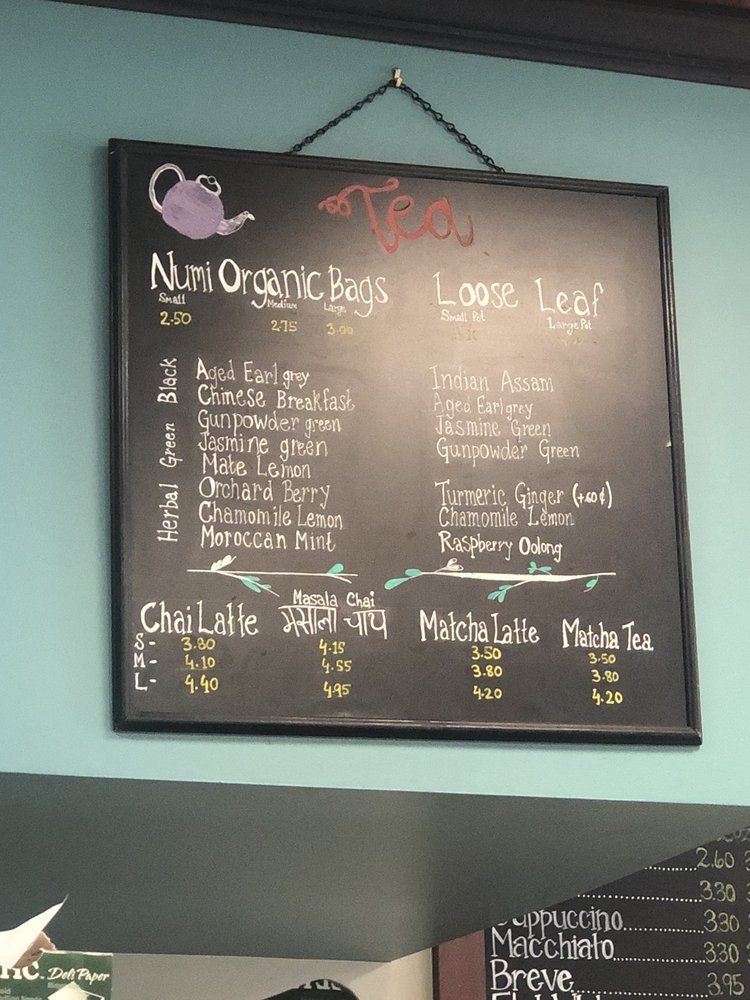 Tea
Numi Organic Bags
Small Medium Large
2.50 2.75 3.00
Loose Leaf
Small Pot Large Pot
Black
Green
Herbal
Aged Earl grey
Chinese Breakfast
Gunpowder green
Jasmine green
Mate Lemon
Orchard Berry
Chamomile Lemon
Moroccan Mint
Indian Assam
Aged Earl grey
Jasmine Green
Gunpowder Green
Turmeric Ginger (+60¢)
Chamomile Lemon
Raspberry Oolong
Chai Latte
S- 3.80
M- 4.10
L- 4.40
Masala Chai
मसाला चाय
4.15
4.55
4.95
Matcha Latte
3.50
3.80
4.20
Matcha Tea
3.50
3.80
4.20
2.60
3.30
Cappuccino 3.30
Macchiato 3.30
Breve 3.95
Deli Paper